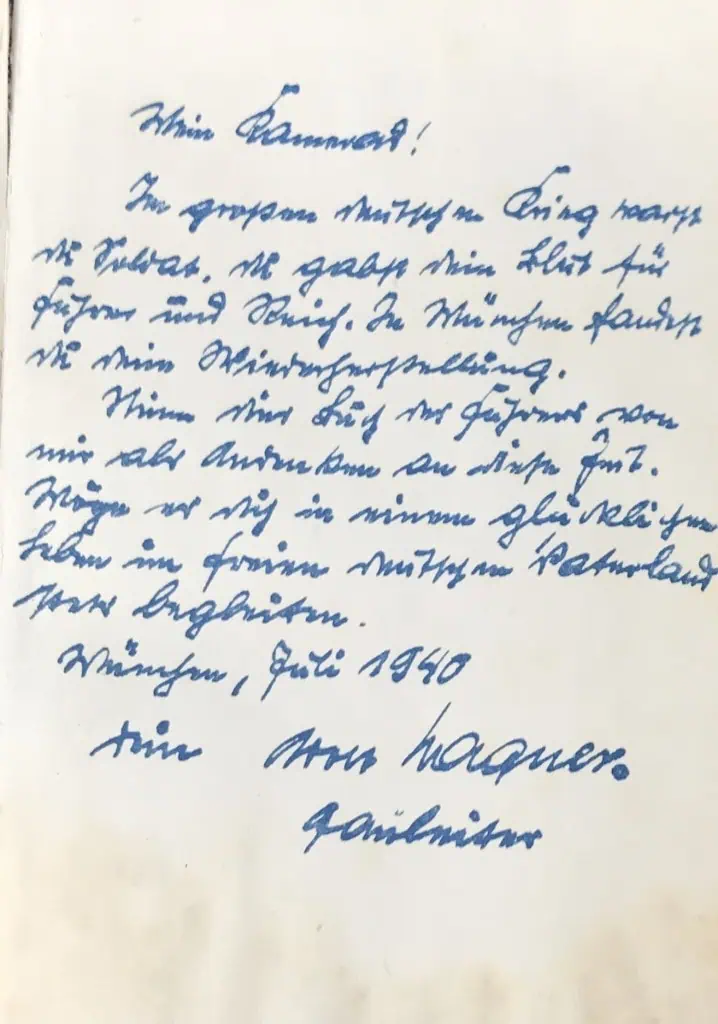 Mein Kamerad!
Im großen deutschen Krieg warst
du Soldat, du gabst dein Blut für
Führer und Reich. In München fandest
du deine Wiederherstellung.
Nimm dies Buch des Führers von
mir als Andenken an diese Zeit.
Möge es dich in einem glücklichen
Leben im freien deutschen Vaterland
stets begleiten.
München, Juli 1940
dein Wagner.
Gauleiter